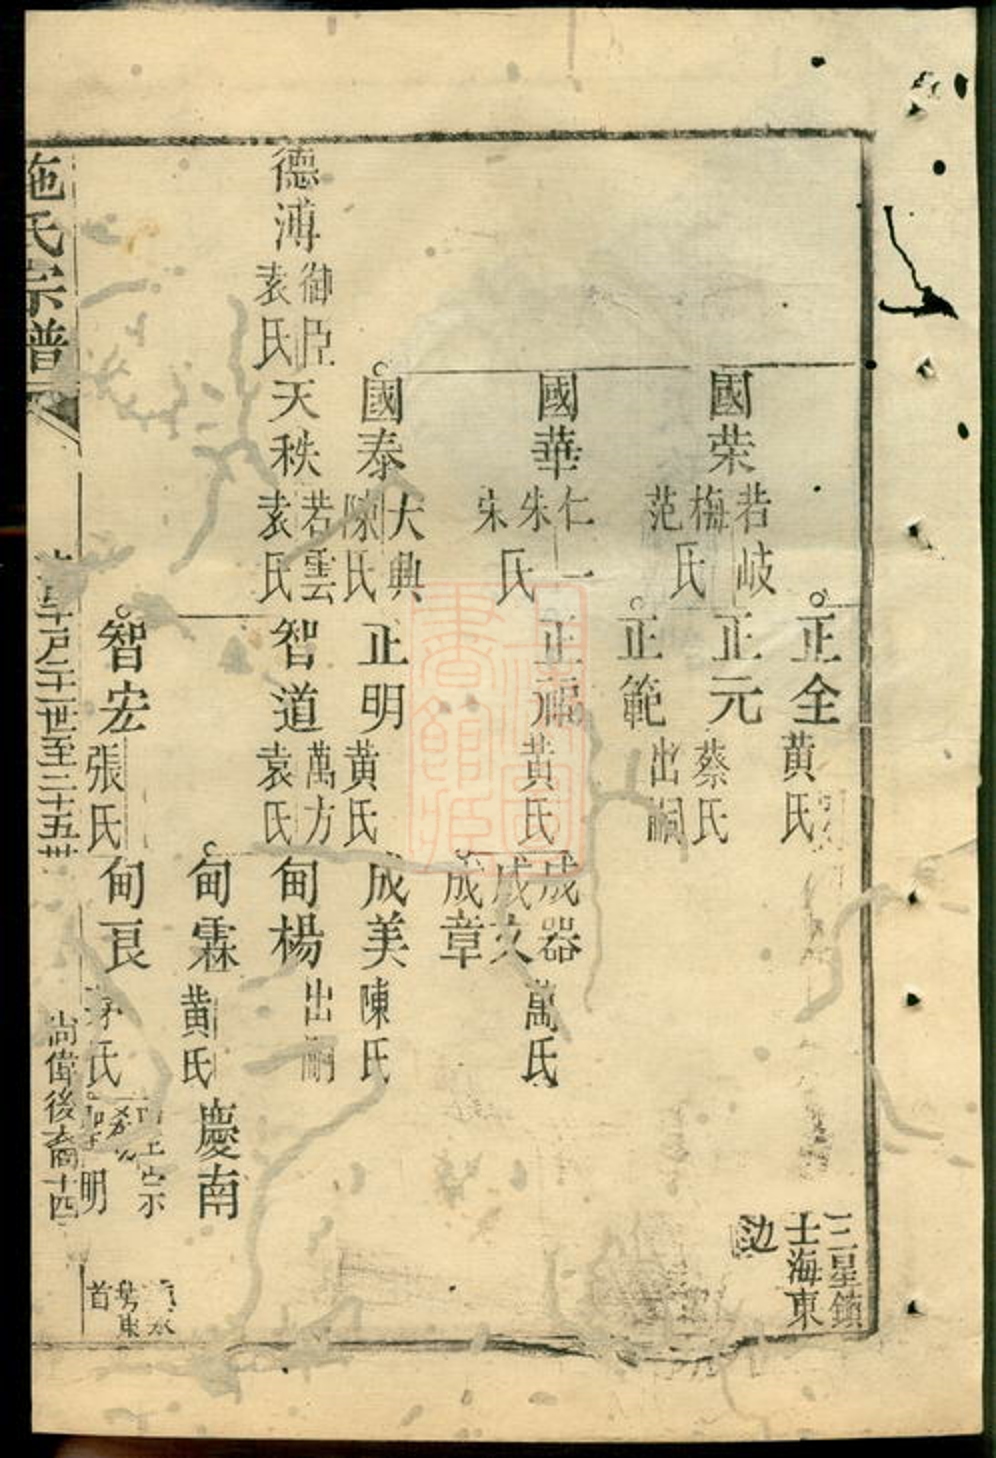 正全
黄氏
三星鎮
士海東
边
國荣
若岐
梅
范
氏
正元
蔡氏
正範
出嗣
國華
仁一
朱
宋
氏
正福
黄氏
成器
萬氏
成文
成章
國泰
大興
陳氏
正明
黄氏
成美
陳氏
德溥
御臣
袁氏
天秩
若雲
袁氏
智道
萬方
袁氏
甸楊
出嗣
甸霖
黄氏
慶南
智宏
張氏
甸良
氏
明
首
施氏宗譜
世至三十五世
尚偉後裔
十四